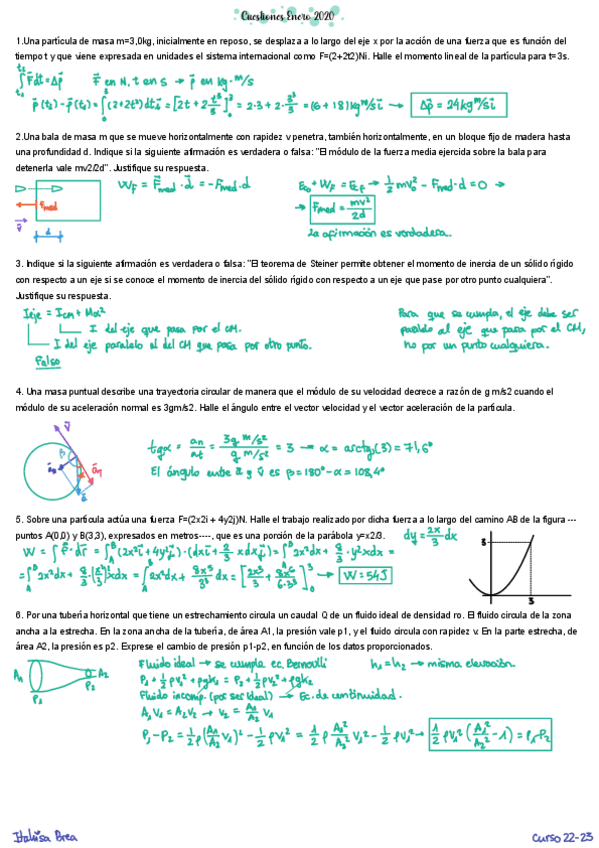 Cuestiones Enero 2020
1.Una partícula de masa m=3,0kg, inicialmente en reposo, se desplaza a lo largo del eje x por la acción de una fuerza que es función del
tiempo t y que viene expresada en unidades el sistema internacional como F=(2+2t2)Ni. Halle el momento lineal de la partícula para t=3s.
∫ F⃗dt = Δp⃗ F⃗ en N, t en s → p⃗ en kg·m/s
p⃗(t₂) - p⃗(t₁) = ∫(2+2t²)dt i⃗ = [2t + 2 t³/3]³₀ = 2·3 + 2·3³/3 = (6+18)kg m/s i⃗ → Δp⃗ = 24kg m/s i⃗
2.Una bala de masa m que se mueve horizontalmente con rapidez v penetra, también horizontalmente, en un bloque fijo de madera hasta
una profundidad d. Indique si la siguiente afirmación es verdadera o falsa: "El módulo de la fuerza media ejercida sobre la bala para
detenerla vale mv2/2d". Justifique su respuesta.
W_F = F⃗med · d⃗ = -Fmed · d Eco + W_F = Ecf → 1/2 mv₀² - Fmed·d = 0 →
→ Fmed = mv²/2d
La afirmación es verdadera.
Fmed
v⃗
d
3. Indique si la siguiente afirmación es verdadera o falsa: "El teorema de Steiner permite obtener el momento de inercia de un sólido rígido
con respecto a un eje si se conoce el momento de inercia del sólido rígido con respecto a un eje que pase por otro punto cualquiera".
Justifique su respuesta.
Ieje = Icm + Md²
I del eje que pasa por el CM.
I del eje paralelo al del CM que pasa por otro punto.
Falso
Para que se cumpla, el eje debe ser
paralelo al eje que pasa por el CM,
no por un punto cualquiera.
4. Una masa puntual describe una trayectoria circular de manera que el módulo de su velocidad decrece a razón de g m/s2 cuando el
módulo de su aceleración normal es 3gm/s2. Halle el ángulo entre el vector velocidad y el vector aceleración de la partícula.
tgα = an/at = 3g m/s²/g m/s² = 3 → α = arctg(3) = 71,6°
El ángulo entre a⃗ y v⃗ es β = 180° - α = 108,4°
5. Sobre una partícula actúa una fuerza F=(2x2i + 4y2j)N. Halle el trabajo realizado por dicha fuerza a lo largo del camino AB de la figura ---
puntos A(0,0) y B(3,3), expresados en metros----, que es una porción de la parábola y=x2/3.
dy = 2x/3 dx
W = ∫ F⃗·dr⃗ = ∫(2x²i⃗ + 4y²j⃗)·(dx i⃗ + 2/3 x dx j⃗) = ∫2x²dx + 8/3·y²x dx =
= ∫2x²dx + 8/3·(x²/3)² x dx = ∫2x²dx + 8x⁵/3³ dx = [2x³/3 + 8x⁶/6·3³]³₀ → W = 54J
3
3
6. Por una tubería horizontal que tiene un estrechamiento circula un caudal Q de un fluido ideal de densidad ro. El fluido circula de la zona
ancha a la estrecha. En la zona ancha de la tubería, de área A1, la presión vale p1, y el fluido circula con rapidez v. En la parte estrecha, de
área A2, la presión es p2. Exprese el cambio de presión p1-p2, en función de los datos proporcionados.
A₁ P₁ P₂ A₂
Fluido ideal → se cumple ec. Bernoulli h₁ = h₂ → misma elevación.
P₁ + 1/2 ρv₁² + ρgh₁ = P₂ + 1/2 ρv₂² + ρgh₂
Fluido incomp. (por ser Ideal) → Ec. de continuidad.
A₁V₁ = A₂V₂ → V₂ = A₁/A₂ V₁
P₁ - P₂ = 1/2 ρ(A₁/A₂ V₁)² - 1/2 ρV₁² = 1/2 ρ A₁²/A₂² V₁² - 1/2 ρV₁² → 1/2 ρV₁² (A₁²/A₂² - 1) = P₁-P₂
Curso 22-23